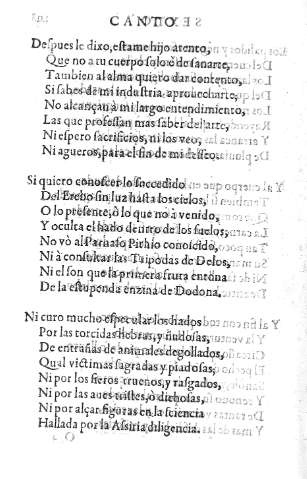 CANTO
Despues le dixo, estame hijo atento,
Que no a tu cuerpo solo è de sanarte,
Tambien al alma quiero dar contento,
Si sabes de mi industria aprouecharte,
No alcançan à mi largo entendimiento,
Las que professan mas saber del arte,
Ni espero sacrificios, ni los veo,
Ni agueros, para el fin de mi desseo.
Si quiero conoscer lo succedido
Del Erebo sin luz hasta los cielos,
O lo presente, ò lo que no à venido,
Y oculta el hado dentro de los suelos,
No vò al Parnaso Pithio conoscido,
Ni à consultar las Tripodas de Delos,
Ni el son que la primera fruta entona
De la estupenda enzina de Dodona.
Ni curo mucho especular los hados
Por las torcidas hebras, y ñudosas,
De entrañas de animales degollados,
Qual victimas sagradas y piadosas,
Ni por los fieros truenos, y rasgados,
Ni por las aues tristes, ò dichosas,
Ni por alçar figuras en la sciencia
Hallada por la Assiria diligencia.